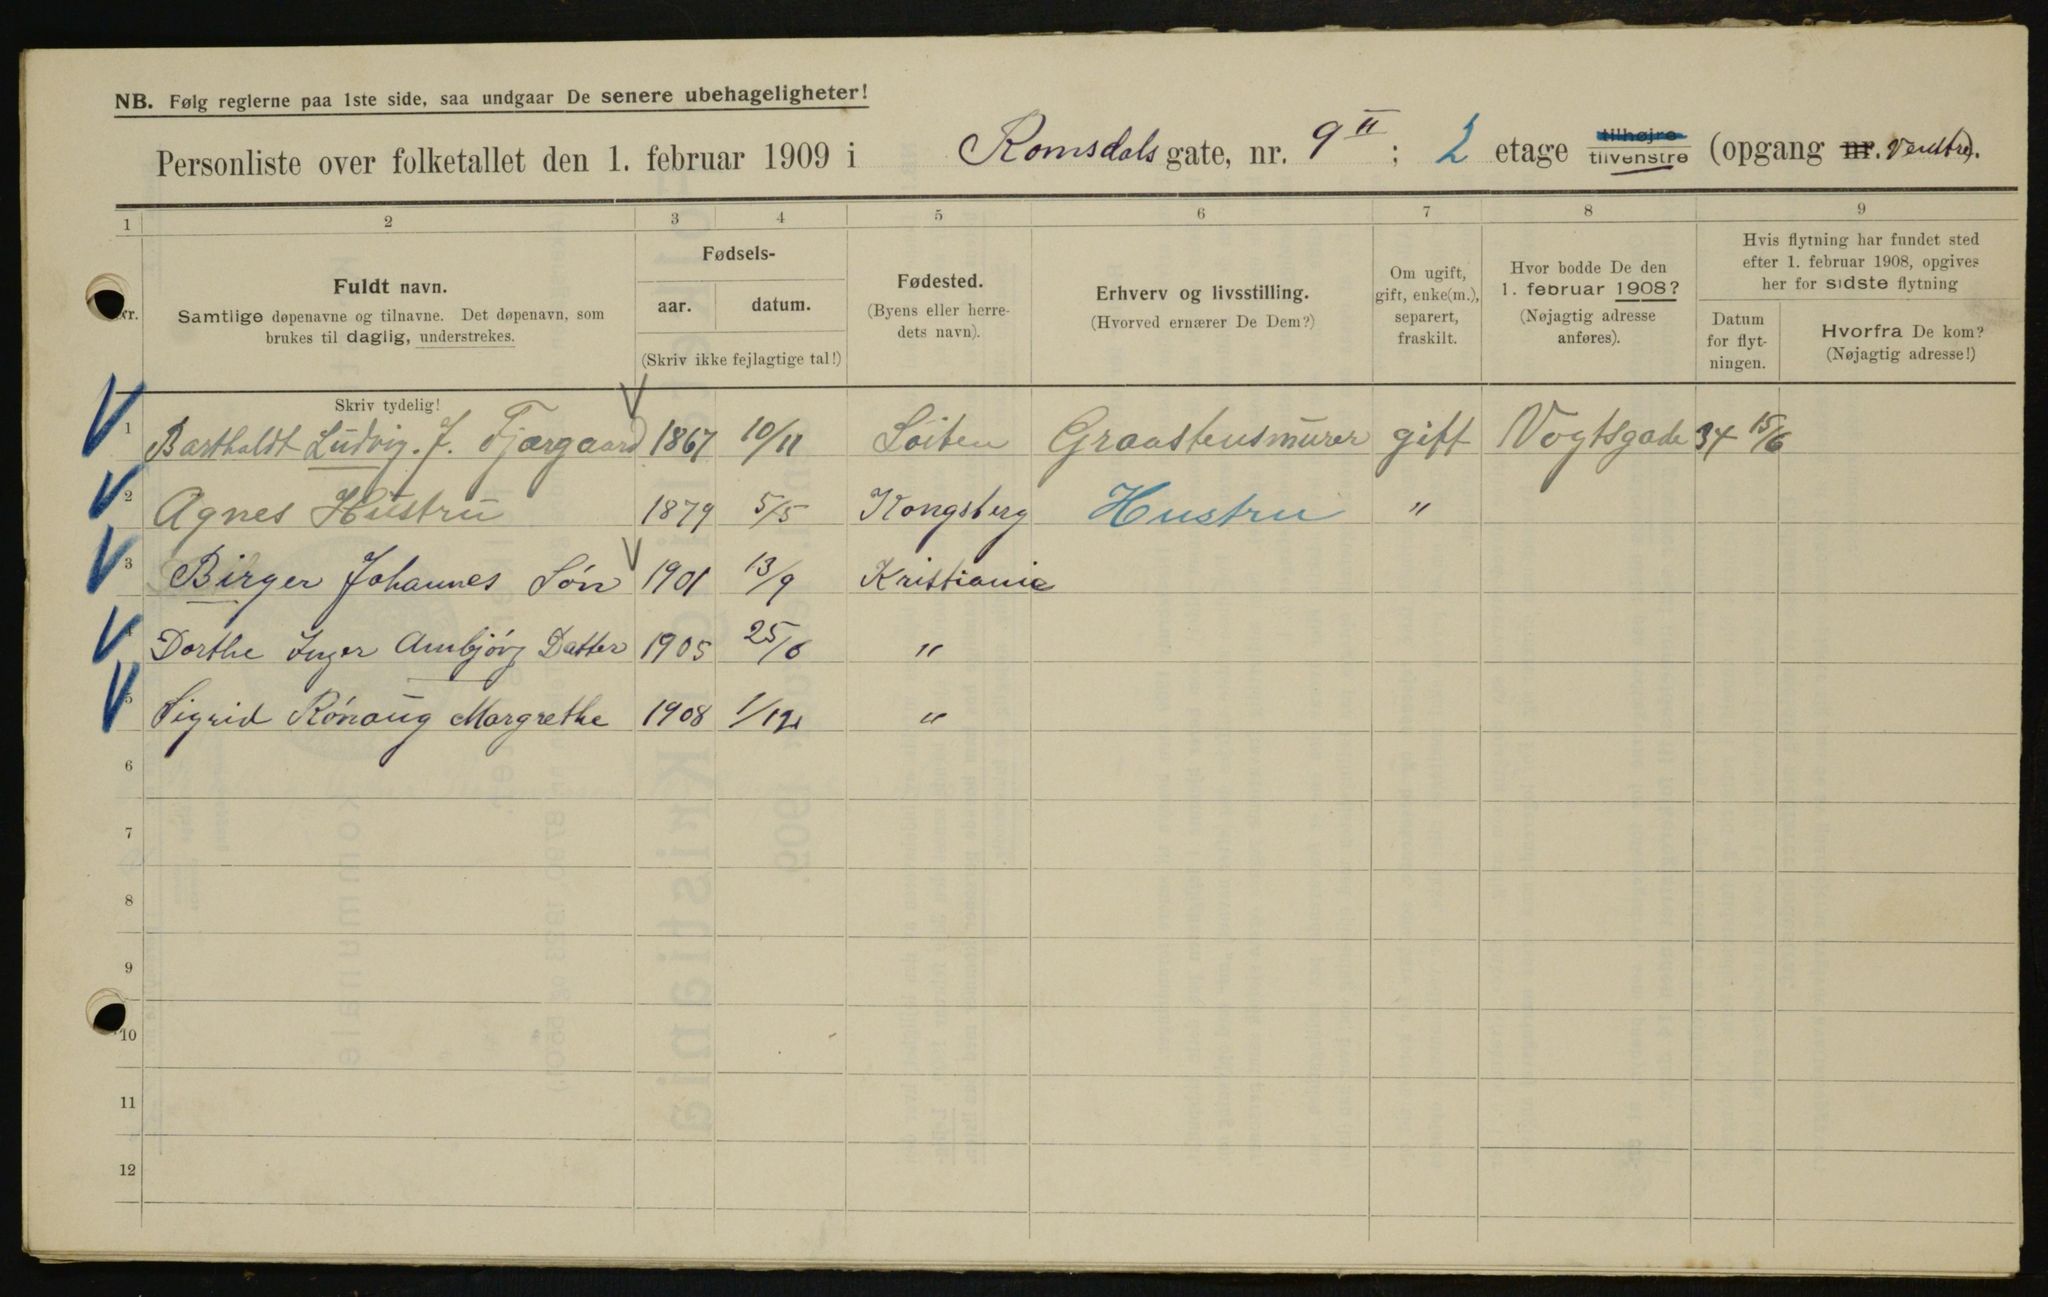 NB. Følg reglerne paa 1ste side, saa undgaar De senere ubehageligheter!
Personliste over folketallet den 1. februar 1909 i Romsdals gate, nr. 9 II ; 2 etage tilhøjre tilvenstre (opgang nr. Venstre).
1 2 3 4 5 6 7 8 9
Nr.
Fuldt navn.
Samtlige døpenavne og tilnavne. Det døpenavn, som
brukes til daglig, understrekes.
Fødsels-
aar. datum.
(Skriv ikke fejlagtige tal!)
Fødested.
(Byens eller herre-
dets navn).
Erhverv og livsstilling.
(Hvorved ernærer De Dem?)
Om ugift,
gift, enke(m.),
separert,
fraskilt.
Hvor bodde De den
1. februar 1908?
(Nøjagtig adresse
anføres).
Hvis flytning har fundet sted
efter 1. februar 1908, opgives
her for sidste flytning
Datum
for flyt-
ningen.
Hvorfra De kom?
(Nøjagtig adresse!)
Skriv tydelig!
1 Bartholdt Ludvig. J. Fjærgaard 1867 10/11 Løiten Graastensmurer gift Vogtsgade 34 15/6
2 Agnes Hustru 1879 5/5 Kongsberg Hustru "
3 Birger Johannes Søn 1901 13/9 Kristiania
4 Dorthe Inger Ambjörg Datter 1905 25/6 "
5 Sigrid Rónaug Margrethe 1908 1/12 "
6
7
8
9
10
11
12